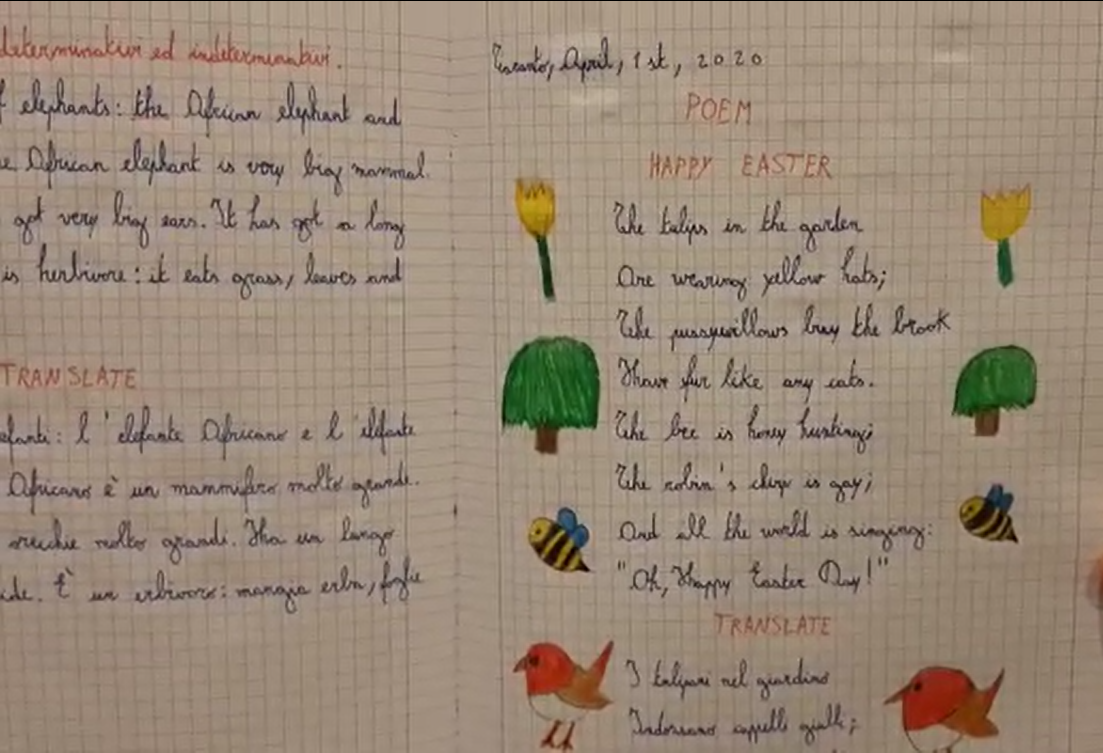 determinativi ed indeterminativi.
elephants: the African elephant and
African elephant is very big mammal.
got very big ears. It has got a long
is herbivore: it eats grass, leaves and
TRANSLATE
efanti: l'elefante Africano e l'elefante
Africano è un mammifero molto grande.
orecchie molto grandi. Ha un lungo
È un erbivoro: mangia erba, foglie
Taranto, April, 1st, 2020
POEM
HAPPY EASTER
The tulips in the garden
Are wearing yellow hats;
The pussywillows buy the brook
Have fur like any cats.
The bee is honey hunting;
The robin's chirp is gay;
And all the world is singing:
"Oh, Happy Easter Day!"
TRANSLATE
I tulipani nel giardino
Indossano cappelli gialli;